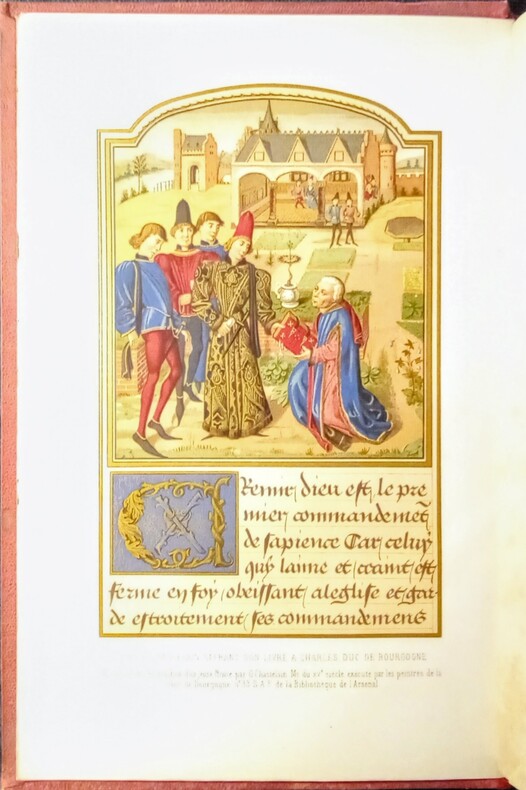 Cremir dieu est le pre
mier commandemēt
de sapience Car celuy
quy laime et craint est
ferme en foy obeissant a leglise et gar
de estroitement ses commandemens
SON LIVRE A CHARLES DUC DE BOURGOGNE
par G. Chastelain Ms du XVe siècle, exécuté par les peintres de la
Bourgogne. de la Bibliothèque de l'Arsenal